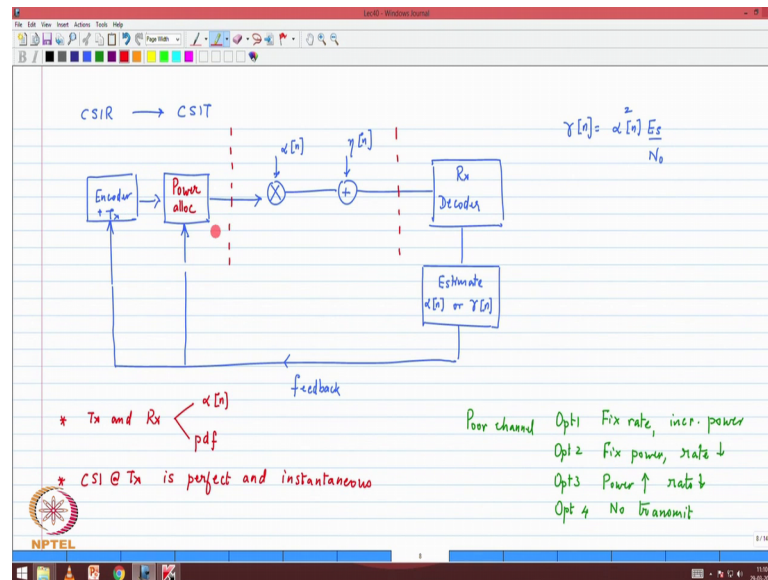 Lec40 - Windows Journal
File Edit View Insert Actions Tools Help
Page Width
B I
CSIR → CSIT
γ[n] = α²[n] Es/N₀
α[n]
η[n]
Encoder
+ Tx
Power
alloc
×
+
Rx
Decoder
Estimate
α[n] or γ[n]
feedback
* Tx and Rx < α[n]
pdf
* CSI @ Tx is perfect and instantaneous
Poor channel Opt1 Fix rate, incr. power
Opt 2 Fix power, rate ↓
Opt3 Power ↑ rate ↓
Opt 4 No transmit
NPTEL
8
8/14
11:10